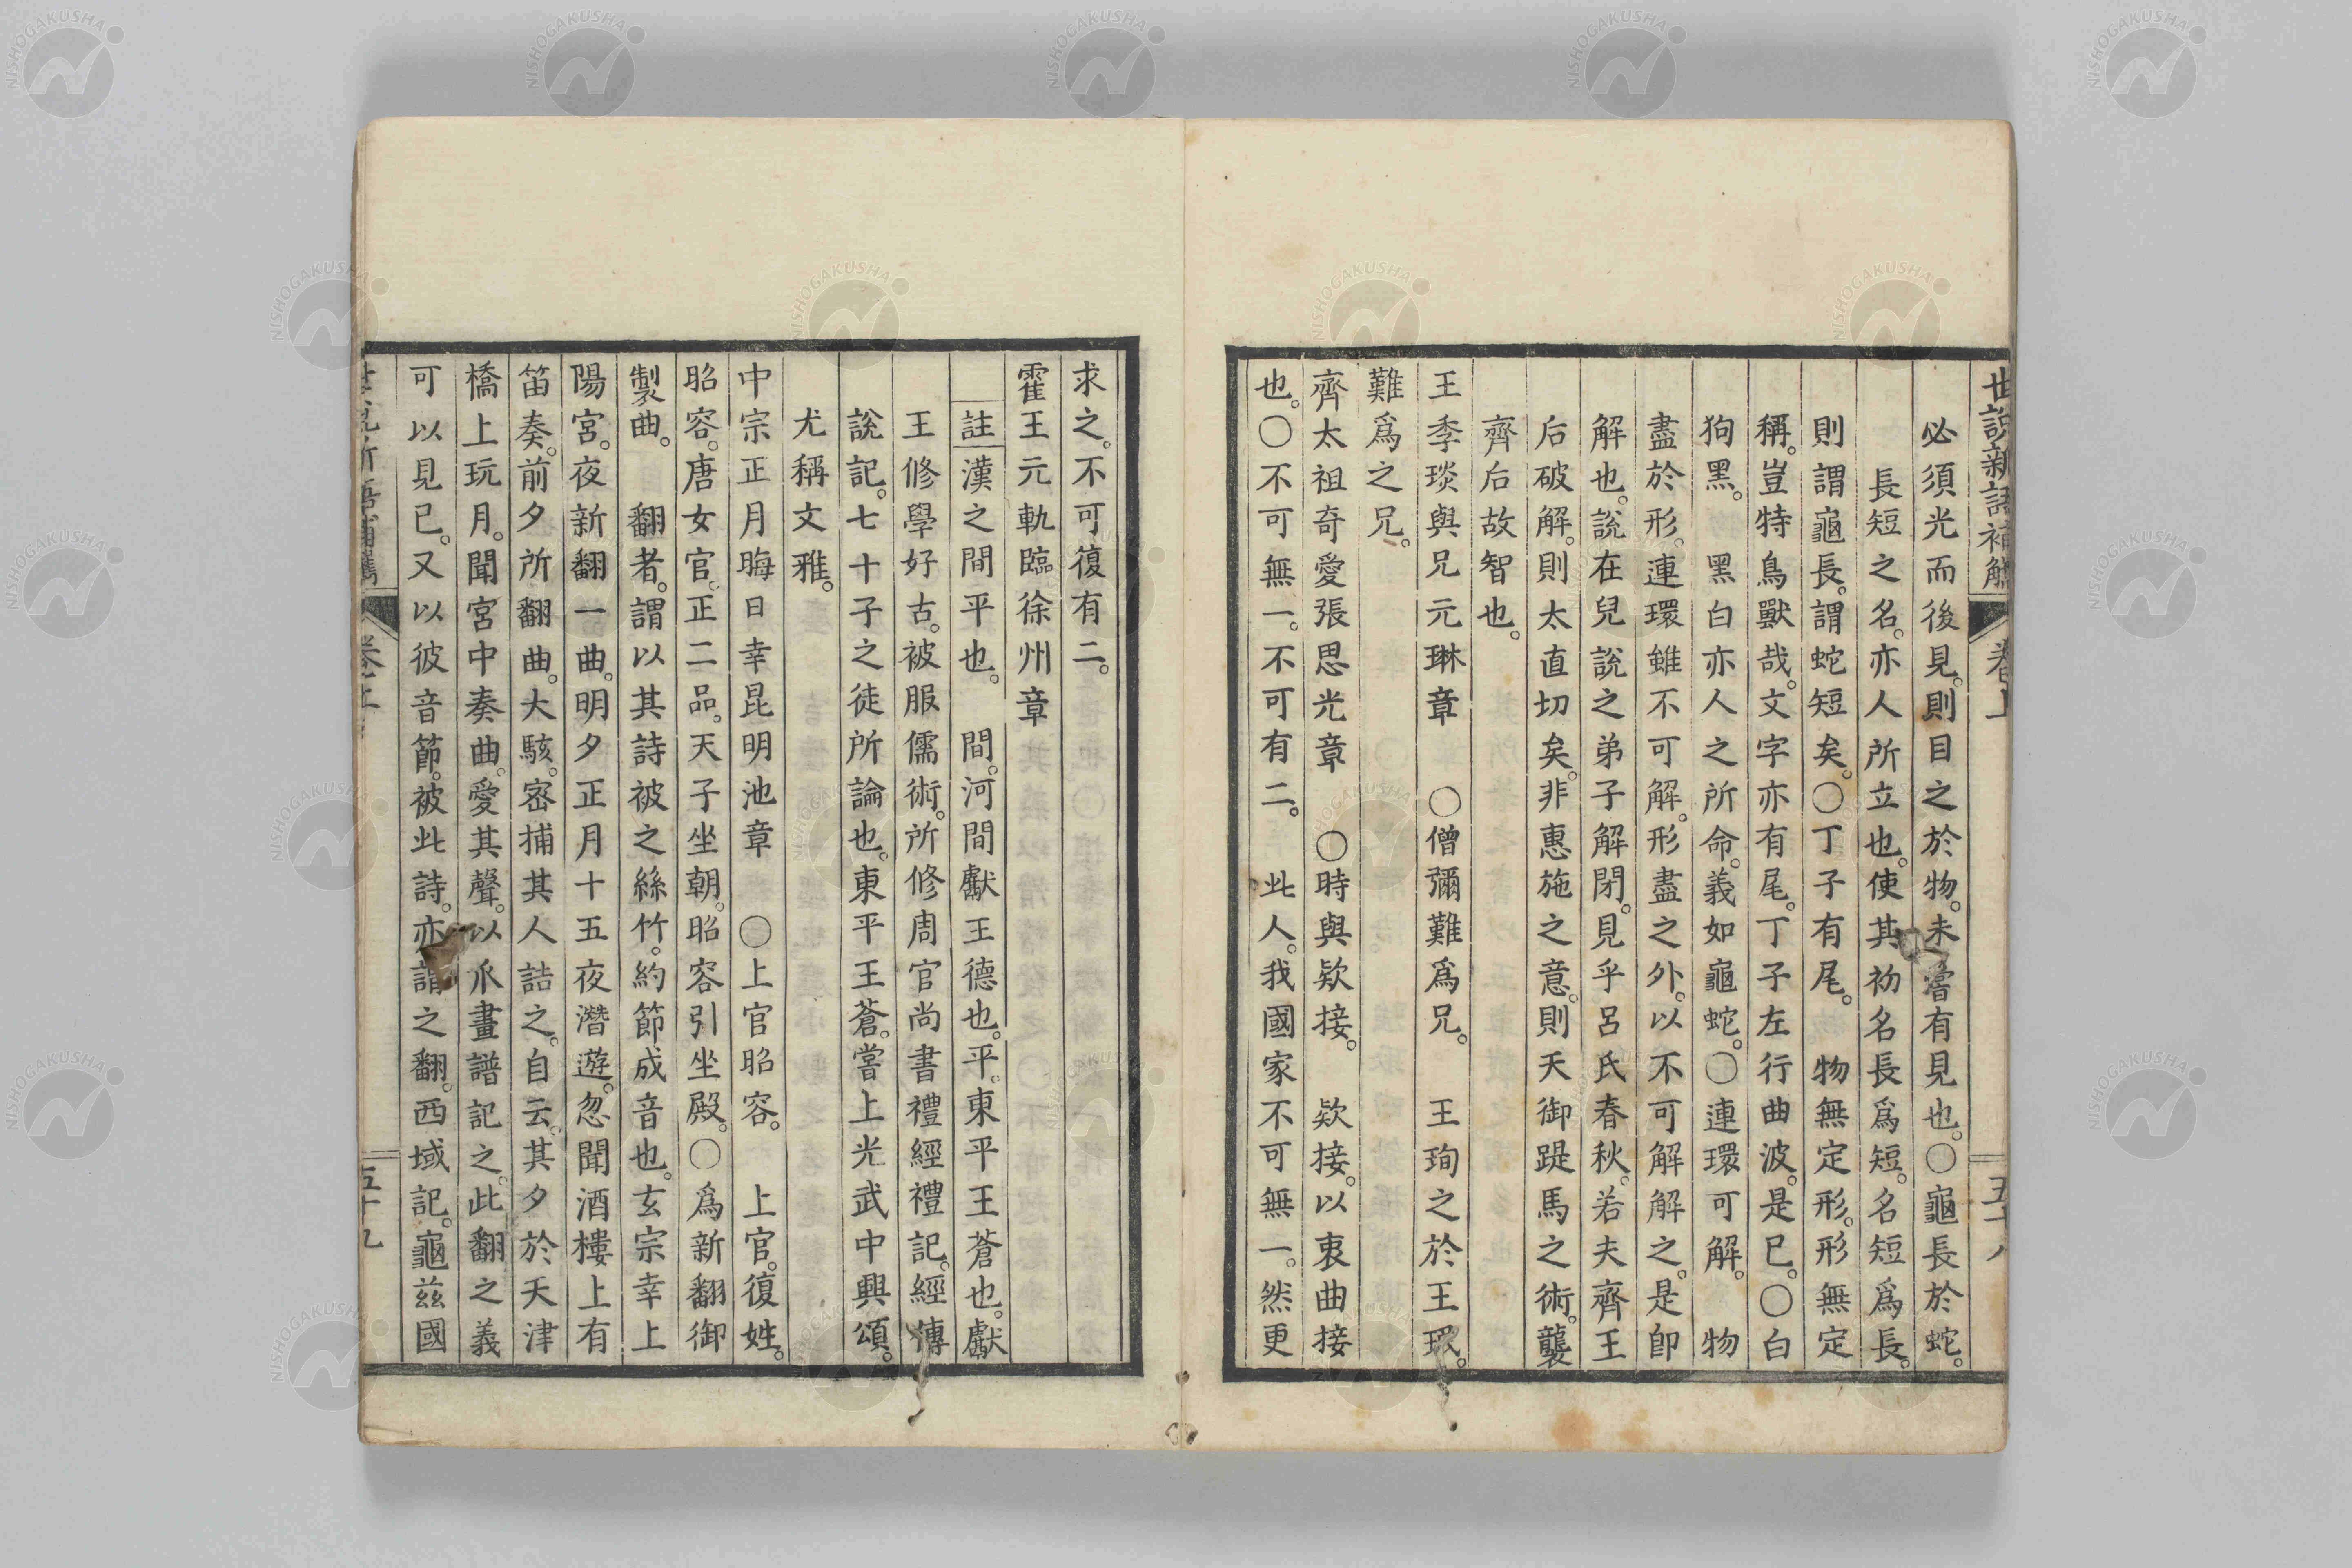 世說新語補觽 卷上 五十八
必須光而後見。則目之於物。未嘗有見也。○龜長於蛇。
長短之名。亦人所立也。使其初名長爲短。名短爲長。
則謂龜長。謂蛇短矣。○丁子有尾。 物無定形。形無定
稱。豈特鳥獸哉。文字亦有尾。丁子左行曲波。是已。○白
狗黑。 黑白亦人之所命。義如龜蛇。○連環可解。 物
盡於形。連環雖不可解。形盡之外。以不可解解之。是卽
解也。說在兒說之弟子解閉。見乎呂氏春秋。若夫齊王
后破解。則太直切矣。非惠施之意。則天御踶馬之術。襲
齊后故智也。
王季琰與兄元琳章 ○僧彌難爲兄。 王珣之於王珉。
難爲之兄。
齊太祖奇愛張思光章 ○時與欵接。 欵接。以衷曲接
也。○不可無一。不可有二。 此人。我國家不可無一。然更
求之。不可復有二。
霍王元軌臨徐州章
註 漢之間平也。 間。河間獻王德也。平。東平王蒼也。獻
王修學好古。被服儒術。所修周官尚書禮經禮記。經傳
說記。七十子之徒所論也。東平王蒼。嘗上光武中興頌。
尤稱文雅。
中宗正月晦日幸昆明池章 ○上官昭容。 上官。復姓。
昭容。唐女官。正二品。天子坐朝。昭容引坐殿。○爲新翻御
製曲。 翻者。謂以其詩被之絲竹。約節成音也。玄宗幸上
陽宮。夜新翻一曲。明夕正月十五夜潛遊。忽聞酒樓上有
笛奏。前夕所翻曲。大駭。密捕其人詰之。自云。其夕於天津
橋上玩月。聞宮中奏曲。愛其聲。以爪畫譜記之。此翻之義
可以見已。又以彼音節。被此詩。亦謂之翻。西域記。龜茲國
世說新語補觽 卷上 五十九
NISHOGAKUSHA